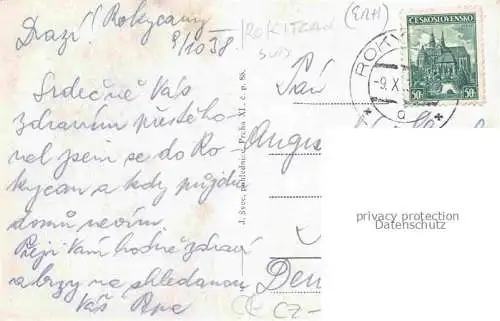 Drazí! Rokycany
9/10 38
Srdečně Vás
zdravím přestěho-
val jsem se do Ro-
kycan a kdy půjdu
domů nevím
Přeji Vám hodně zdraví
a brzy na shledanou
Váš
J. Švec, pohlednice, Praha XI. č. p. 88.
ROKITZAN
(ERH)
ČESKOSLOVENSKO
50h 50h
ROKY
-9.X
Pán
privacy protection
Datenschutz
CZ-